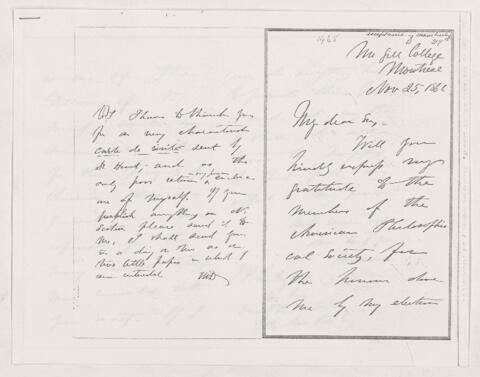 McGill College
Montreal
Nov 25, 186
My dear Sir,
Will you
kindly express my
gratitude to the
members of the
American Philosophi
cal Society, for
the honour done
me by my election
P.S. I have to thank you
for a very characteristic
carte de visite sent by
Dr Hunt, and as the
only poor return
one of myself. If you
publish anything on
Section please send it to
me, I shall send you
in a day or two
two little papers in which I
am interested